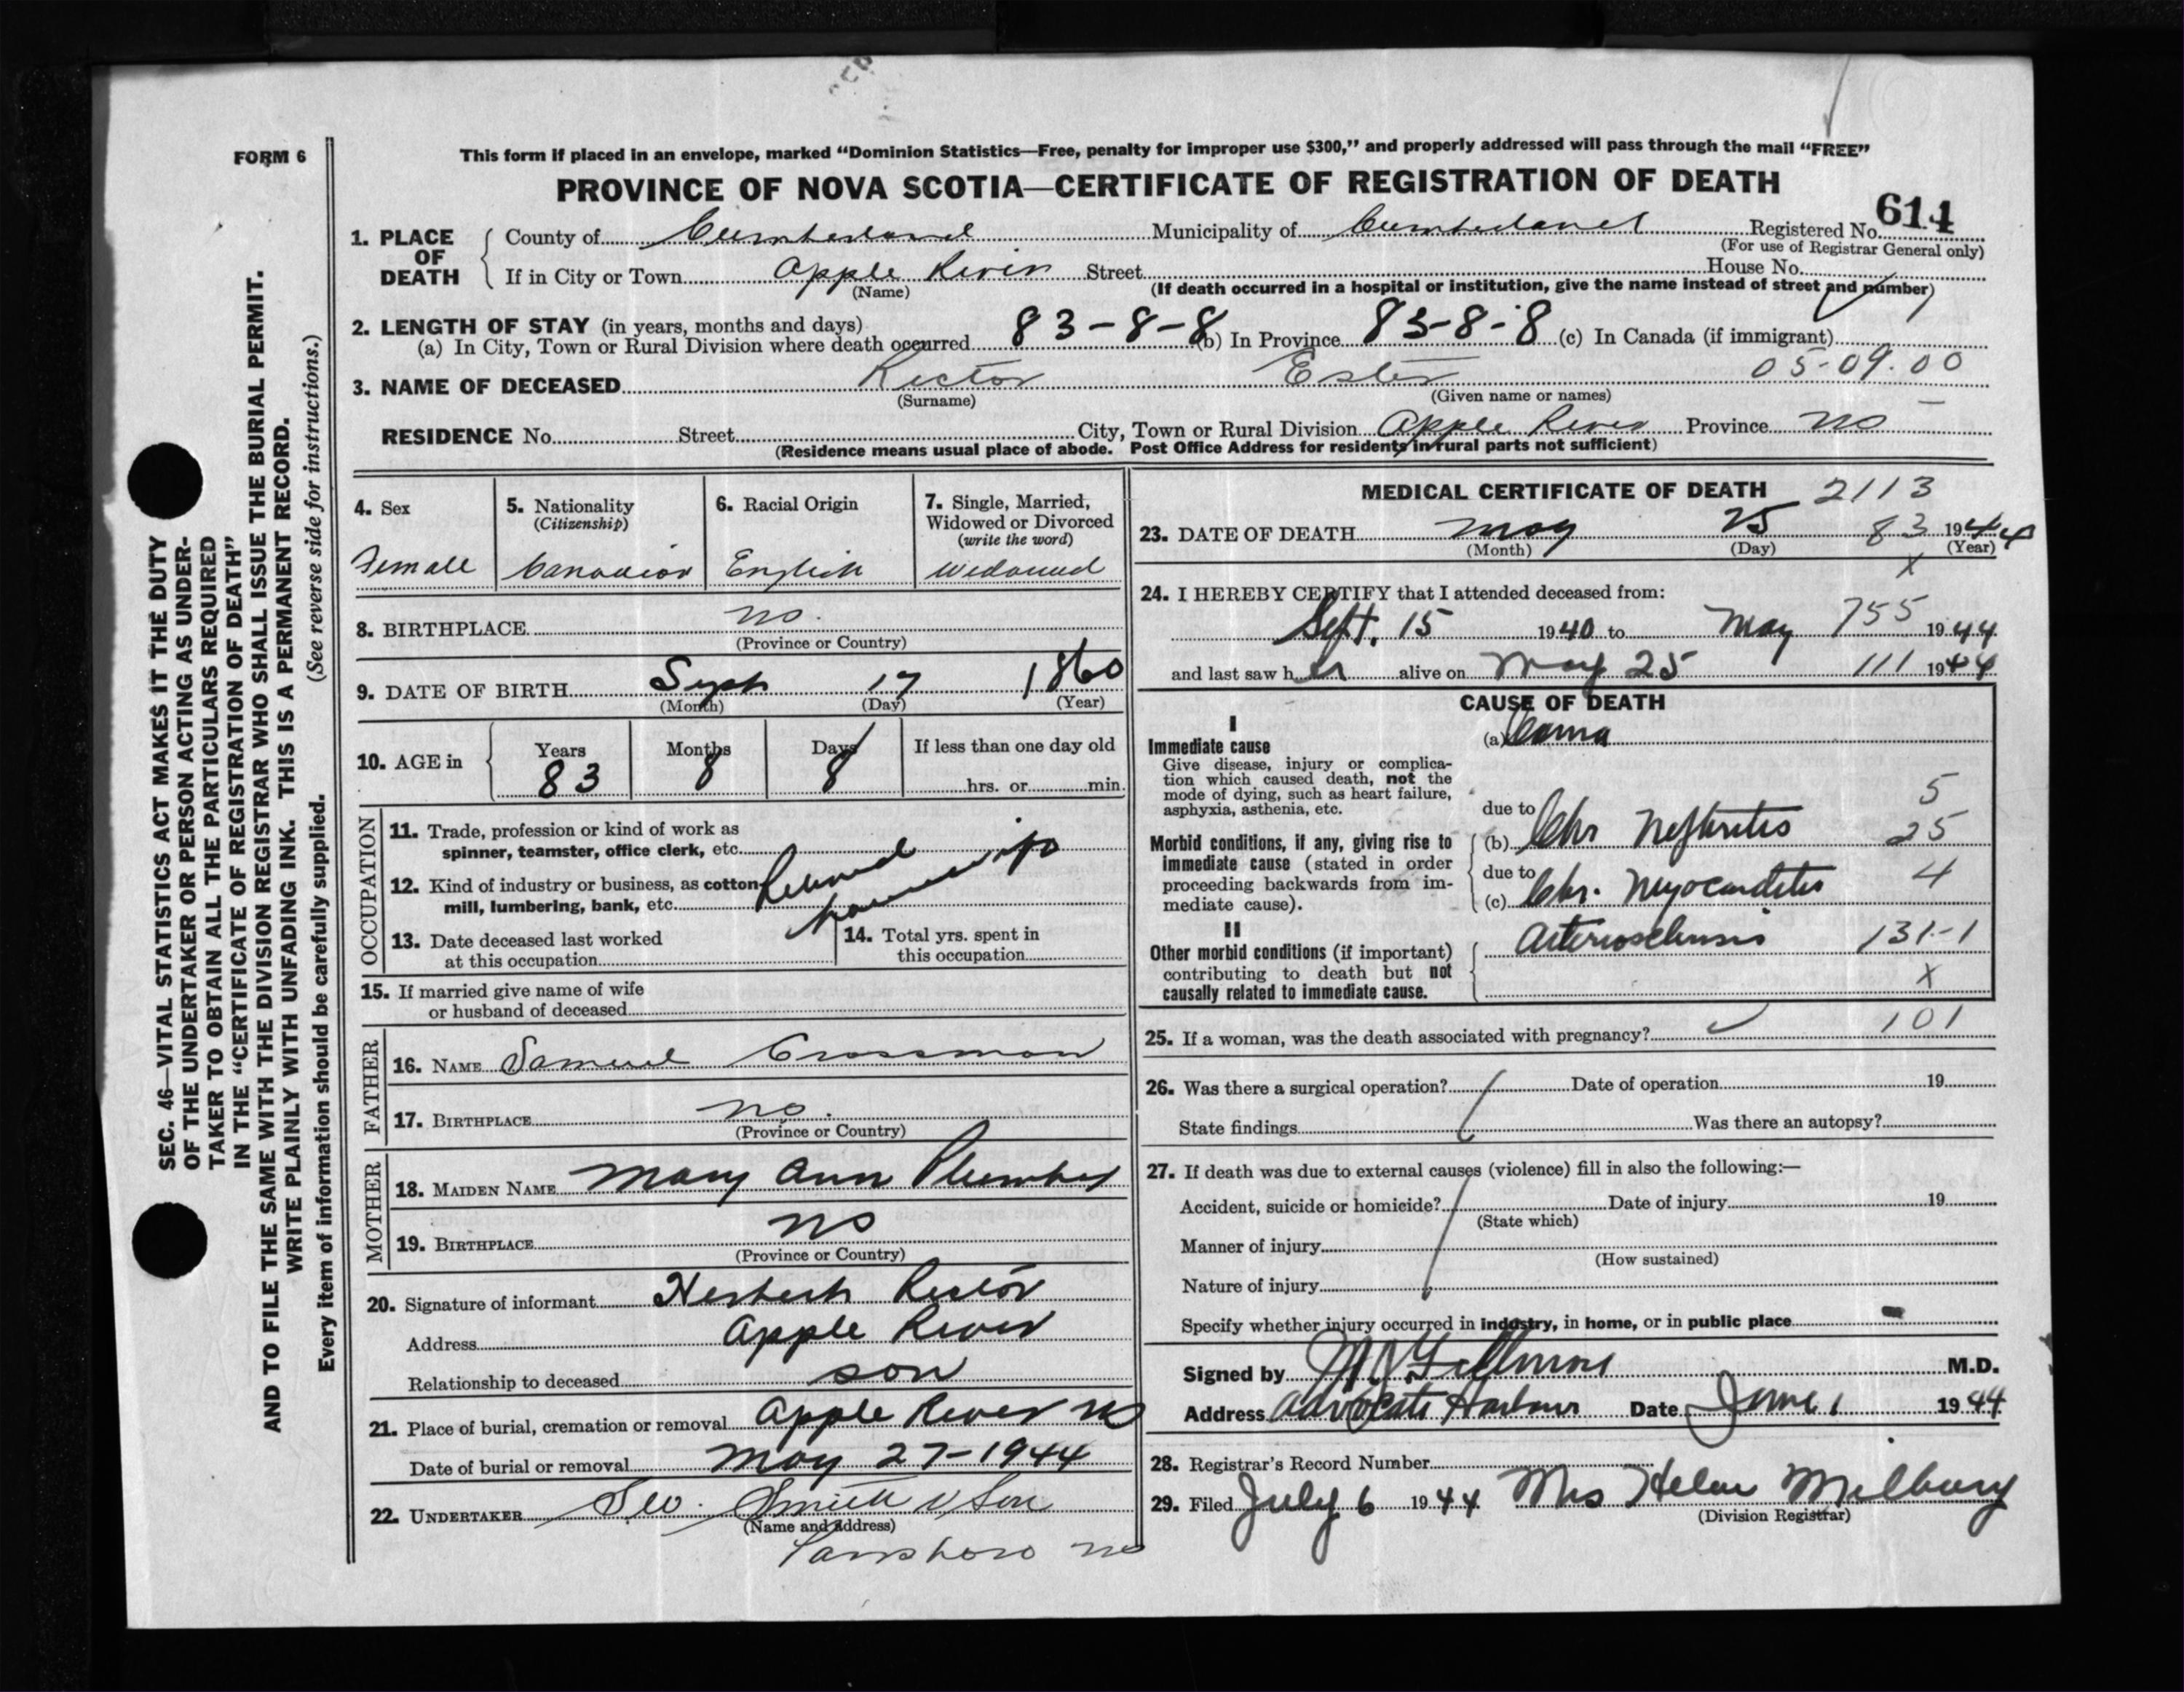 FORM 6
This form if placed in an envelope, marked "Dominion Statistics—Free, penalty for improper use $300," and properly addressed will pass through the mail "FREE"
PROVINCE OF NOVA SCOTIA—CERTIFICATE OF REGISTRATION OF DEATH
614
1. PLACE OF DEATH
County of Cumberland Municipality of Cumberland Registered No.
(For use of Registrar General only)
If in City or Town Apple River Street House No.
(Name) (If death occurred in a hospital or institution, give the name instead of street and number)
2. LENGTH OF STAY (in years, months and days)
(a) In City, Town or Rural Division where death occurred 83-8-8 (b) In Province 83-8-8 (c) In Canada (if immigrant)
05-09.00
3. NAME OF DECEASED Rector Ester
(Surname) (Given name or names)
RESIDENCE No. Street City, Town or Rural Division Apple River Province NS
(Residence means usual place of abode. Post Office Address for residents in rural parts not sufficient)
4. Sex
Female
5. Nationality
(Citizenship)
Canadian
6. Racial Origin
English
7. Single, Married,
Widowed or Divorced
(write the word)
Widowed
8. BIRTHPLACE NS.
(Province or Country)
9. DATE OF BIRTH Sept 17 1860
(Month) (Day) (Year)
10. AGE in
Years Months Days If less than one day old
83 8 8 hrs. or min.
OCCUPATION
11. Trade, profession or kind of work as
spinner, teamster, office clerk, etc.
Retired housewife
12. Kind of industry or business, as cotton
mill, lumbering, bank, etc.
13. Date deceased last worked
at this occupation
14. Total yrs. spent in
this occupation
15. If married give name of wife
or husband of deceased
FATHER
16. NAME Samuel Crossman
17. BIRTHPLACE NS.
(Province or Country)
MOTHER
18. MAIDEN NAME Mary Ann
19. BIRTHPLACE NS
(Province or Country)
20. Signature of informant Herbert Rector
Address Apple River
Relationship to deceased son
21. Place of burial, cremation or removal Apple River NS
Date of burial or removal May 27-1944
22. UNDERTAKER Geo. Smith & Son
(Name and address)
Parrsboro NS
MEDICAL CERTIFICATE OF DEATH 2113
23. DATE OF DEATH May 25 83 1944
(Month) (Day) (Year)
X
24. I HEREBY CERTIFY that I attended deceased from:
Sept. 15 1940 to May 755 1944
and last saw her alive on May 25 111 1944
CAUSE OF DEATH
I
Immediate cause
Give disease, injury or complica-
tion which caused death, not the
mode of dying, such as heart failure,
asphyxia, asthenia, etc.
(a) Coma
5
due to
Morbid conditions, if any, giving rise to
immediate cause (stated in order
proceeding backwards from im-
mediate cause).
(b) Chr Nephritis 25
due to 4
(c) Chr. Myocarditis
II
Other morbid conditions (if important)
contributing to death but not
causally related to immediate cause.
Arteriosclerosis 131-1
X
25. If a woman, was the death associated with pregnancy? 101
26. Was there a surgical operation? Date of operation 19
State findings Was there an autopsy?
27. If death was due to external causes (violence) fill in also the following:—
Accident, suicide or homicide? Date of injury 19
(State which)
Manner of injury
(How sustained)
Nature of injury
Specify whether injury occurred in industry, in home, or in public place
Signed by M.D.
Address Advocate Harbour Date June 1 1944
28. Registrar's Record Number
29. Filed July 6 1944 Mrs Helen Milbury
(Division Registrar)
SEC. 46—VITAL STATISTICS ACT MAKES IT THE DUTY
OF THE UNDERTAKER OR PERSON ACTING AS UNDER-
TAKER TO OBTAIN ALL THE PARTICULARS REQUIRED
IN THE "CERTIFICATE OF REGISTRATION OF DEATH"
AND TO FILE THE SAME WITH THE DIVISION REGISTRAR WHO SHALL ISSUE THE BURIAL PERMIT.
WRITE PLAINLY WITH UNFADING INK. THIS IS A PERMANENT RECORD.
Every item of information should be carefully supplied. (See reverse side for instructions.)